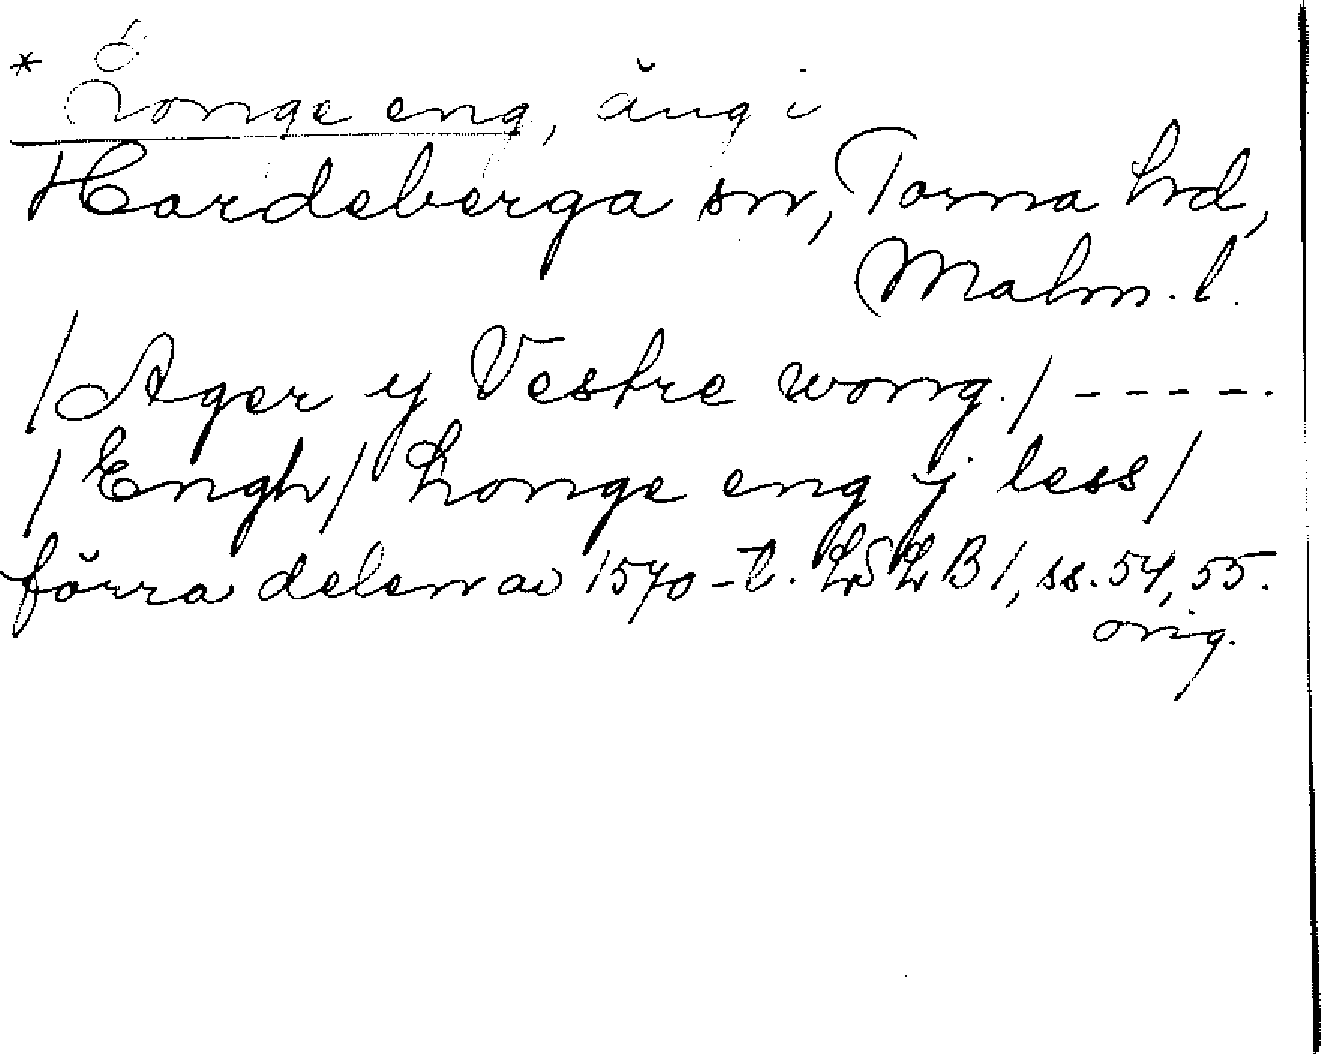 * Longe eng, äng i
Hardeberga sn, Torna hd,
Malm. l.
/Ager y Vestre wong./-----
/Engh/ Longe eng ij less/
förra delen av 1570-t. LSLB1, ss. 54, 55.
orig.